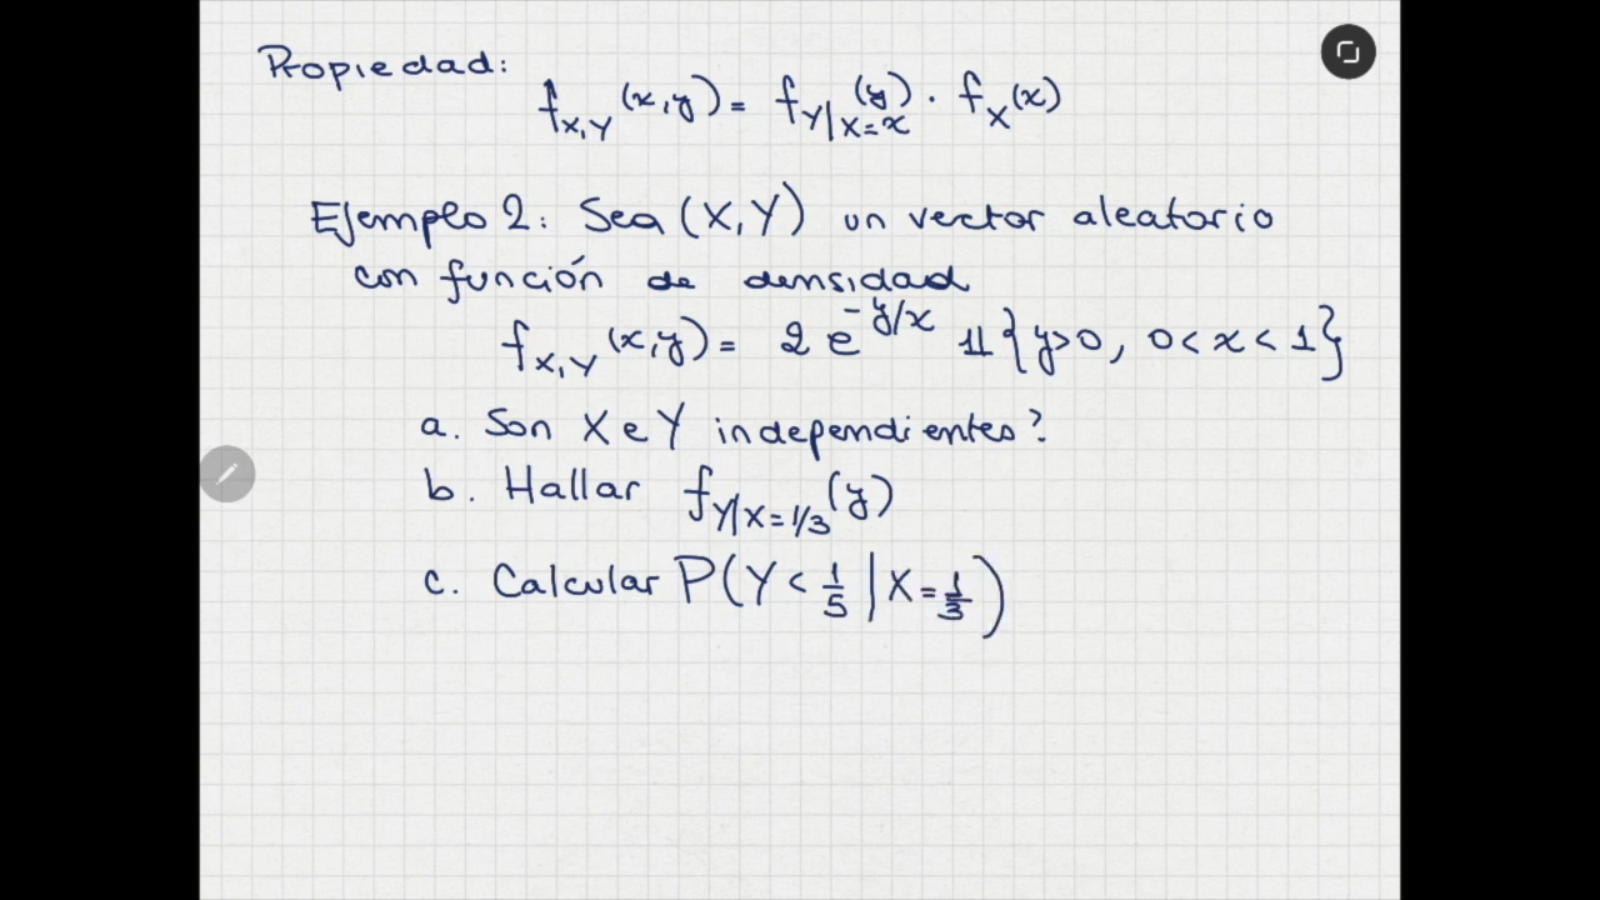 Propiedad:
f_{X,Y}(x,y) = f_{Y|X=x}(y) · f_X(x)
Ejemplo 2: Sea (X,Y) un vector aleatorio
con función de densidad
f_{X,Y}(x,y) = 2 e^{-y/x} 𝟙{y>0, 0<x<1}
a. Son X e Y independientes?
b. Hallar f_{Y|X=1/3}(y)
c. Calcular P(Y < 1/5 | X = 1/3)